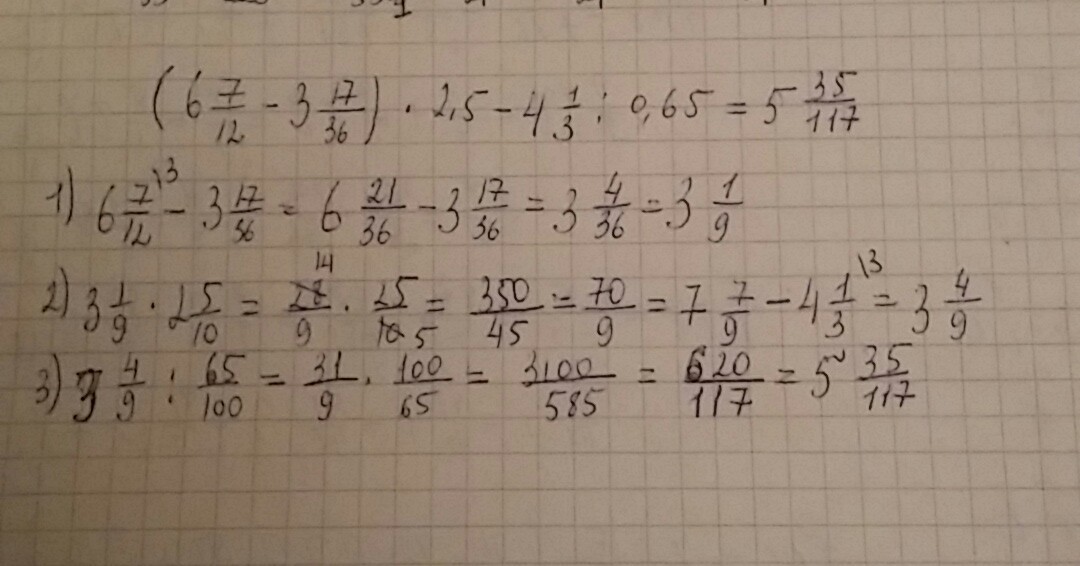 (6 7/12 - 3 17/36) · 2,5 - 4 1/3 : 0,65 = 5 35/117
1) 6 7/12 \3 - 3 17/36 = 6 21/36 - 3 17/36 = 3 4/36 = 3 1/9
2) 3 1/9 · 2 5/10 = 28/9 14 · 25/10 5 = 350/45 = 70/9 = 7 7/9 - 4 1/3 \3 = 3 4/9
3) 3 4/9 : 65/100 = 31/9 · 100/65 = 3100/585 = 620/117 = 5 35/117